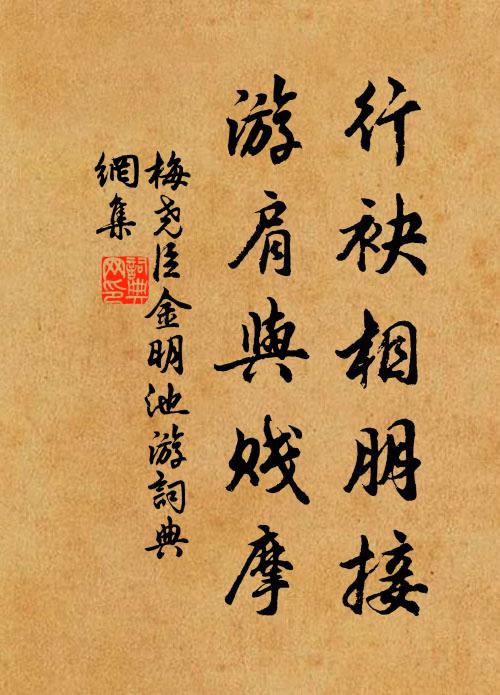 行袂相朋接
游肩與賤摩
梅尧臣金明池游詞典
網集
詞典
网印